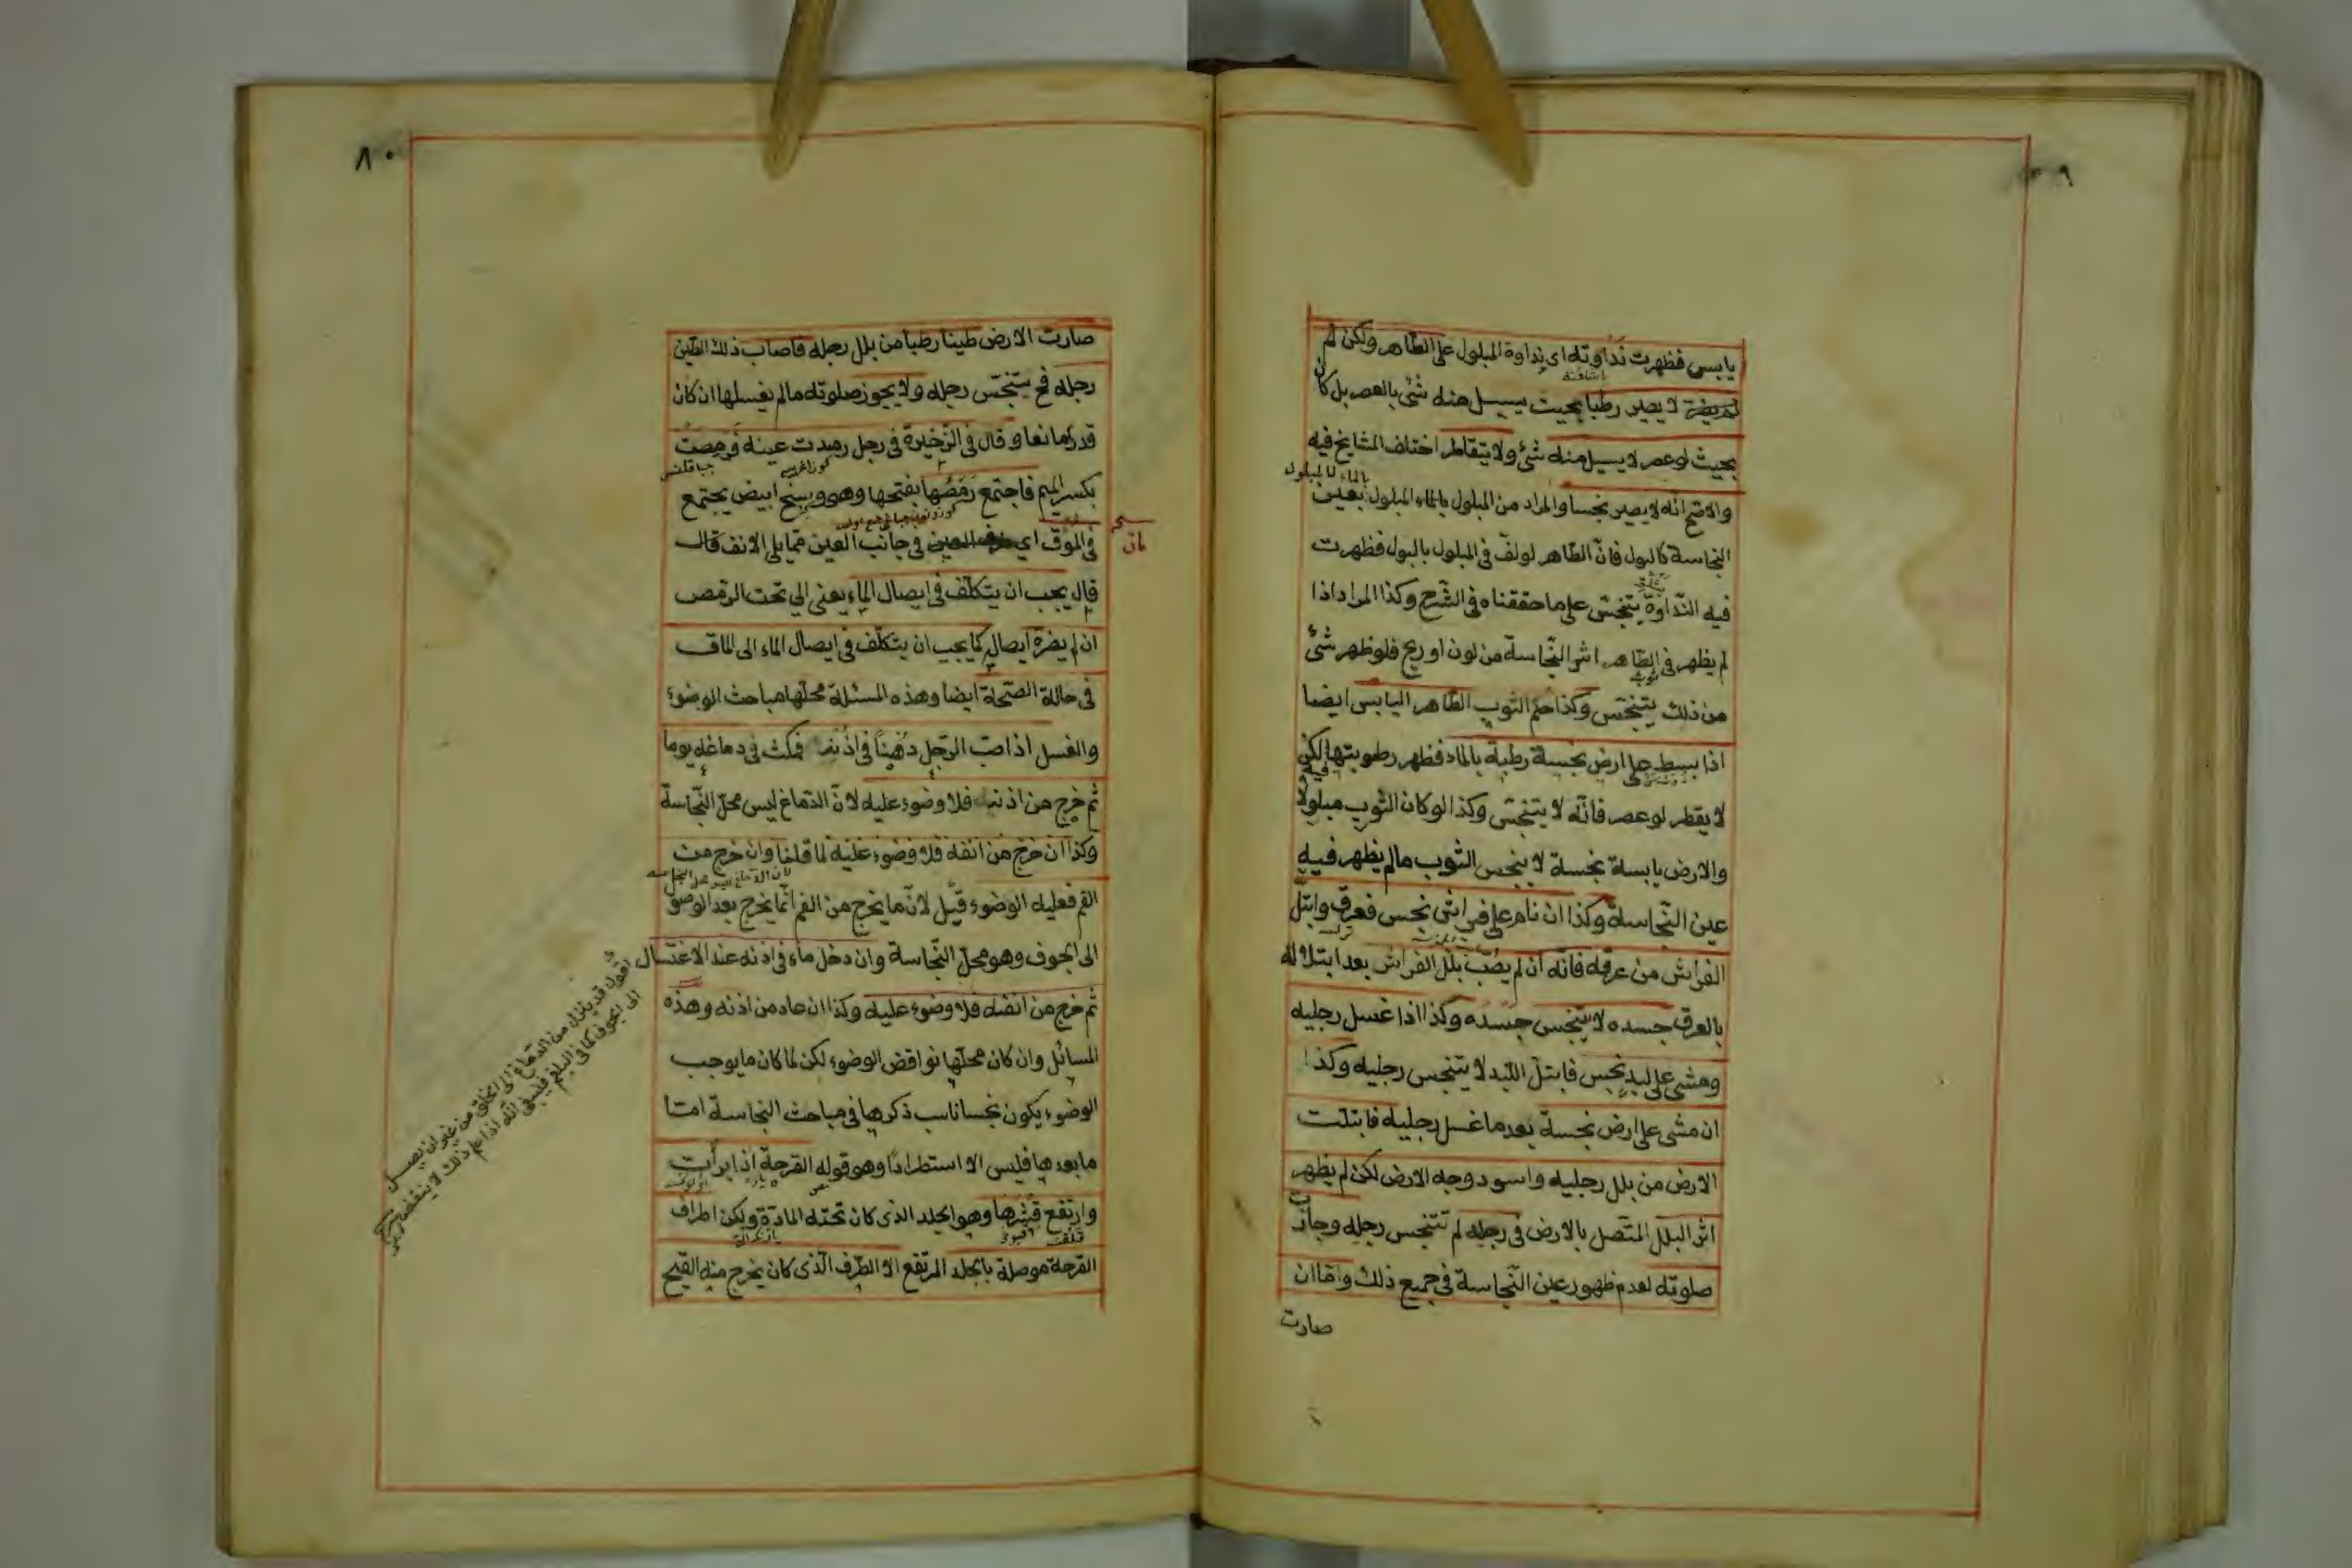 يابس فظهرت نداوته اى نداوة المبلول على الطاهر ولكن لم
لا يصير رطبا بحيث يسيل منه شئ بالعصر بل كان
بحيث لو عصر لا يسيل منه شئ ولا يتقاطر اختلف المشايخ فيه
والاصح انه لا يصير نجسا والمراد من المبلول بالماء المبلول بعين
النجاسة كالبول فانّ الطاهر لو لفّ فى المبلول بالبول فظهرت
فيه النّداوة يتنجّس على ما حققناه فى الشّرح وكذا المراد اذا
لم يظهر فى الطّاهر اثر النّجاسة من لون او ريح فلو ظهر شئ
من ذلك يتنجّس وكذا حكم الثوب الطّاهر اليابس ايضا
اذا بسط على ارض نجسة رطبة بالماء فظهر رطوبتها فيه لكن
لا يقطر لو عصر فانّه لا يتنجّس وكذا لو كان الثوب مبلولا
والارض يابسة نجسة لا يتنجس الثوب ما لم يظهر فيه
عين النّجاسة وكذا ان نام على فراش نجس فعرق وابتلّ
الفراش من عرقه فانّه ان لم يصب بلل الفراش بعد ابتلاله
بالعرق جسده لا يتنجس جسده وكذا اذا غسل رجليه
ومشى على لبد نجس فابتلّ اللّبد لا يتنجس رجليه وكذا
ان مشى على ارض نجسة بعد ما غسل رجليه فابتلّت
الارض من بلل رجليه واسود وجه الارض لكن لم يظهر
اثر البلل المتّصل بالارض فى رجله لم تتنجس رجله وجازت
صلوته لعدم ظهور عين النّجاسة فى جميع ذلك وامّا ان
صارت
٨٠
صارت الارض طينا رطبا من بلل رجله فاصاب ذلك الطين
رجله فح يتنجّس رجله ولا يجوز صلوته ما لم يغسلها ان كان
قدرا مانعا وقال فى الذّخيرة فى رجل رمدت عينه فرمصت
بكسر الميم فاجتمع رمصها بفتحها وهو وسخ ابيض يجتمع
فى الموق اى فى جانب العين ممّا يلى الانف قال
قال يجب ان يتكلّف فى ايصال الماء يعنى الى تحت الرّمص
ان لم يضرّه ايصاله كما يجب ان يتكلّف فى ايصال الماء الى الماق
فى حالة الصّحّة ايضا وهذه المسئلة محلّها مباحث الوضوء
والغسل اذا صبّ الرّجل دهنا فى اذنه فمكث فى دماغه يوما
ثم خرج من اذنه فلا وضوء عليه لانّ الدّماغ ليس محلّ النّجاسة
وكذا ان خرج من انفه فلا وضوء عليه لما قلنا وان خرج من
الفم فعليه الوضوء قيل لانّ ما يخرج من الفم انّما يخرج بعد الوصول
الى الجوف وهو محلّ النّجاسة وان دخل ماء فى اذنه عند الاغتسال
ثم خرج من انفه فلا وضوء عليه وكذا ان عاد من اذنه وهذه
المسائل وان كان محلّها نواقض الوضوء لكن لما كان ما يوجب
الوضوء يكون نجسا ناسب ذكرها فى مباحث النجاسة امّا
ما بعدها فليس الا استطرادا وهو قوله القرحة اذا برأت
وارتفع قشرها وهو الجلد الذى كان تحته المادّة ولكن اطراف
القرحة موصلة بالجلد المرتفع الا الطّرف الّذى كان يخرج منه القيح
اقول قد ينزل من الدّماغ الى الحلق من غير ان يصل
الى الجوف كما فى البلغم فينبغى انّه اذا علم ذلك لا ينقض